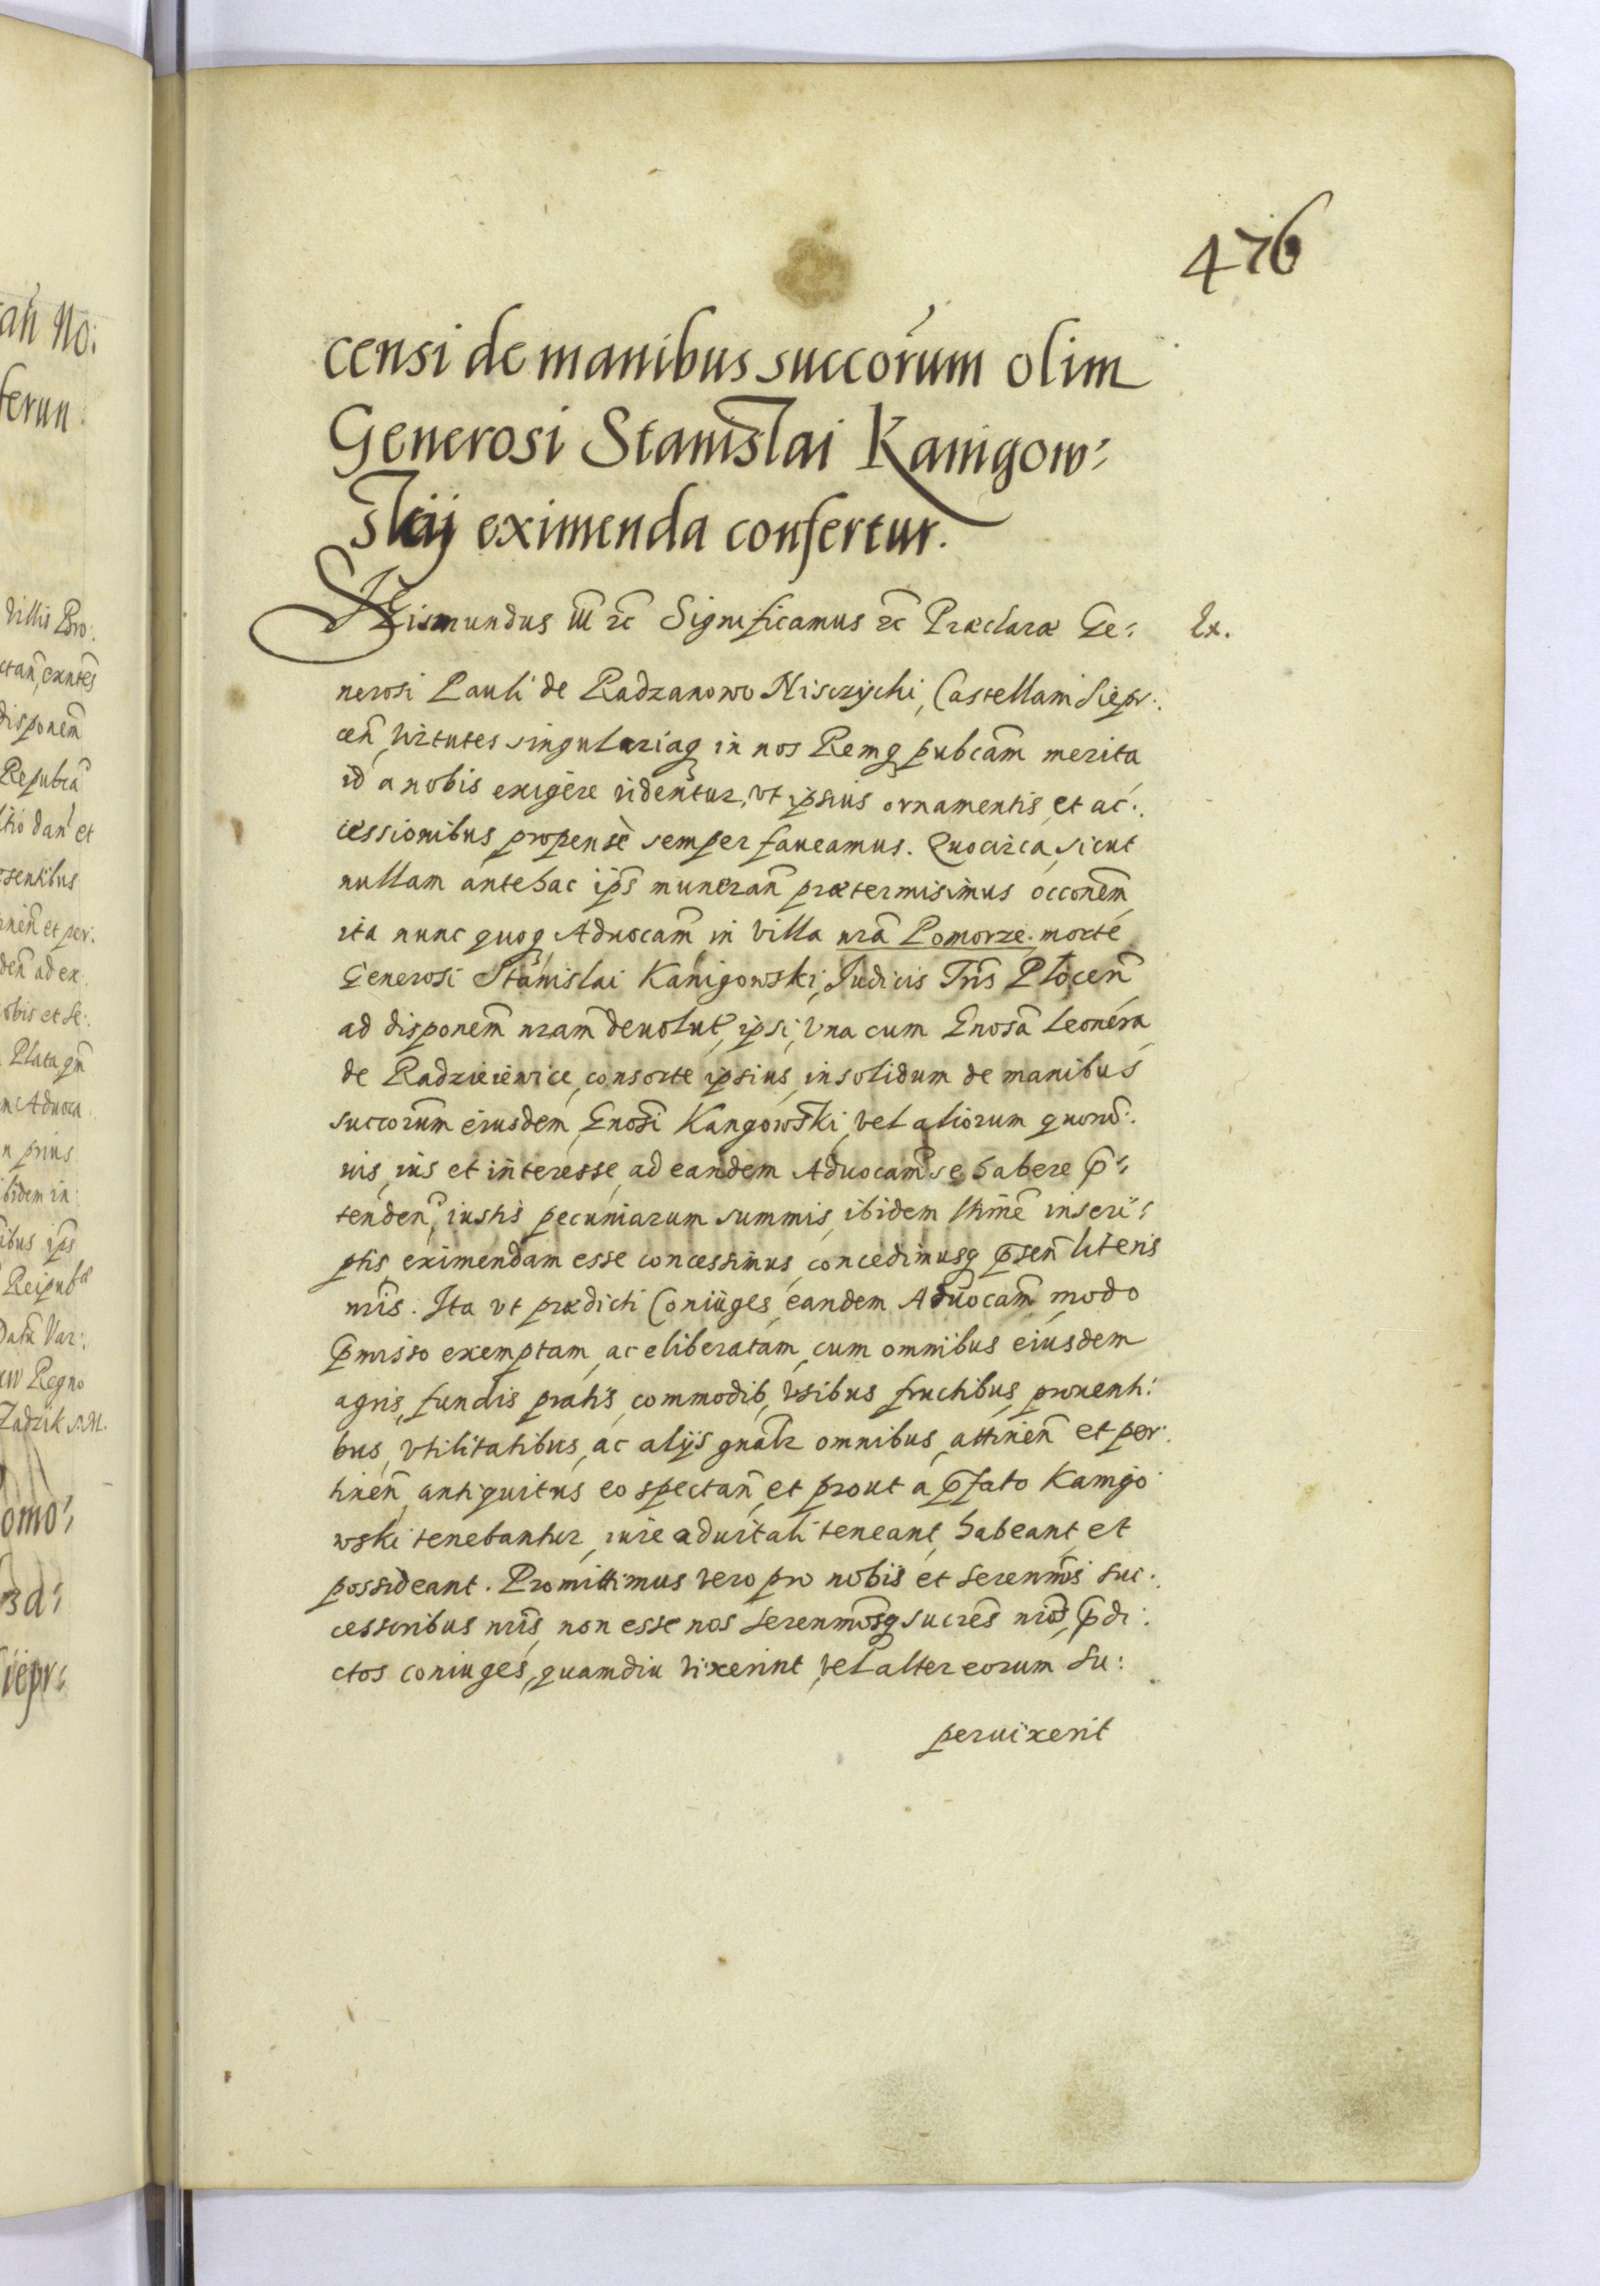 476
censi de manibus succorum olim
Generosi Stanislai Kanigow:
skij eximenda confertur.
Sigismundus III etc Significamus etc Præclaræ Ge: Ex.
nerosi Pauli de Radzanowo Nisczÿcki, Castellani Siepr:
cen̄ virtutes singulariaq in nos Remq pubcam̄ merita
id a nobis exigere videntur, vt ipsius ornamentis et ac:
cessionibus propensè semper faueamus. Quocirca, sicut
nullam antehac ip̄s muneran̄ prætermisimus occonem̄,
ita nunc quoq Aduocam̄ in villa nrā Pomorze morte
Generosi Stanislai Kanigowski, Judicis Trr̄s Plocen̄
ad disponem̄ nram̄ deuolut̄, ipsi, vna cum Gnosā Leonora
de Radzieiewice, consorte ipsius, insolidum de manibus
succorum̄ eiusdem Gnosī Kangowski, vel aliorum quorū:
uis, ius et interesse, ad eandem Aduocam̄ se habere p̄:
tenden̄, iustis pecuniarum summis, ibidem ltimē inscri:
ptis, eximendam esse concessimus, concedimusq p̄sen̄ literis
nris̄. Ita vt prædicti Coniuges, eandem Aduocam̄, modo
p̄misso exemptam, ac eliberatam, cum omnibus eiusdem
agris, fundis pratis, commodib, vsibus fructibus, prouenti:
bus, vtilitatibus, ac alijs gnalr̄ omnibus, attinen̄ et per:
tinen̄, antiquitus eo spectan̄, et prout à p̄fato Kanigo
wski tenebantur, iure aduitali teneant, habeant, et
possideant. Promittimus vero pro nobis et Serenmīs Suc:
cessoribus nris̄, non esse nos Serenmosq̄ sucres̄ nros̄, p̄di:
ctos coniuges, quamdiu vixerint, vel alter eorum Su:
peruixerit